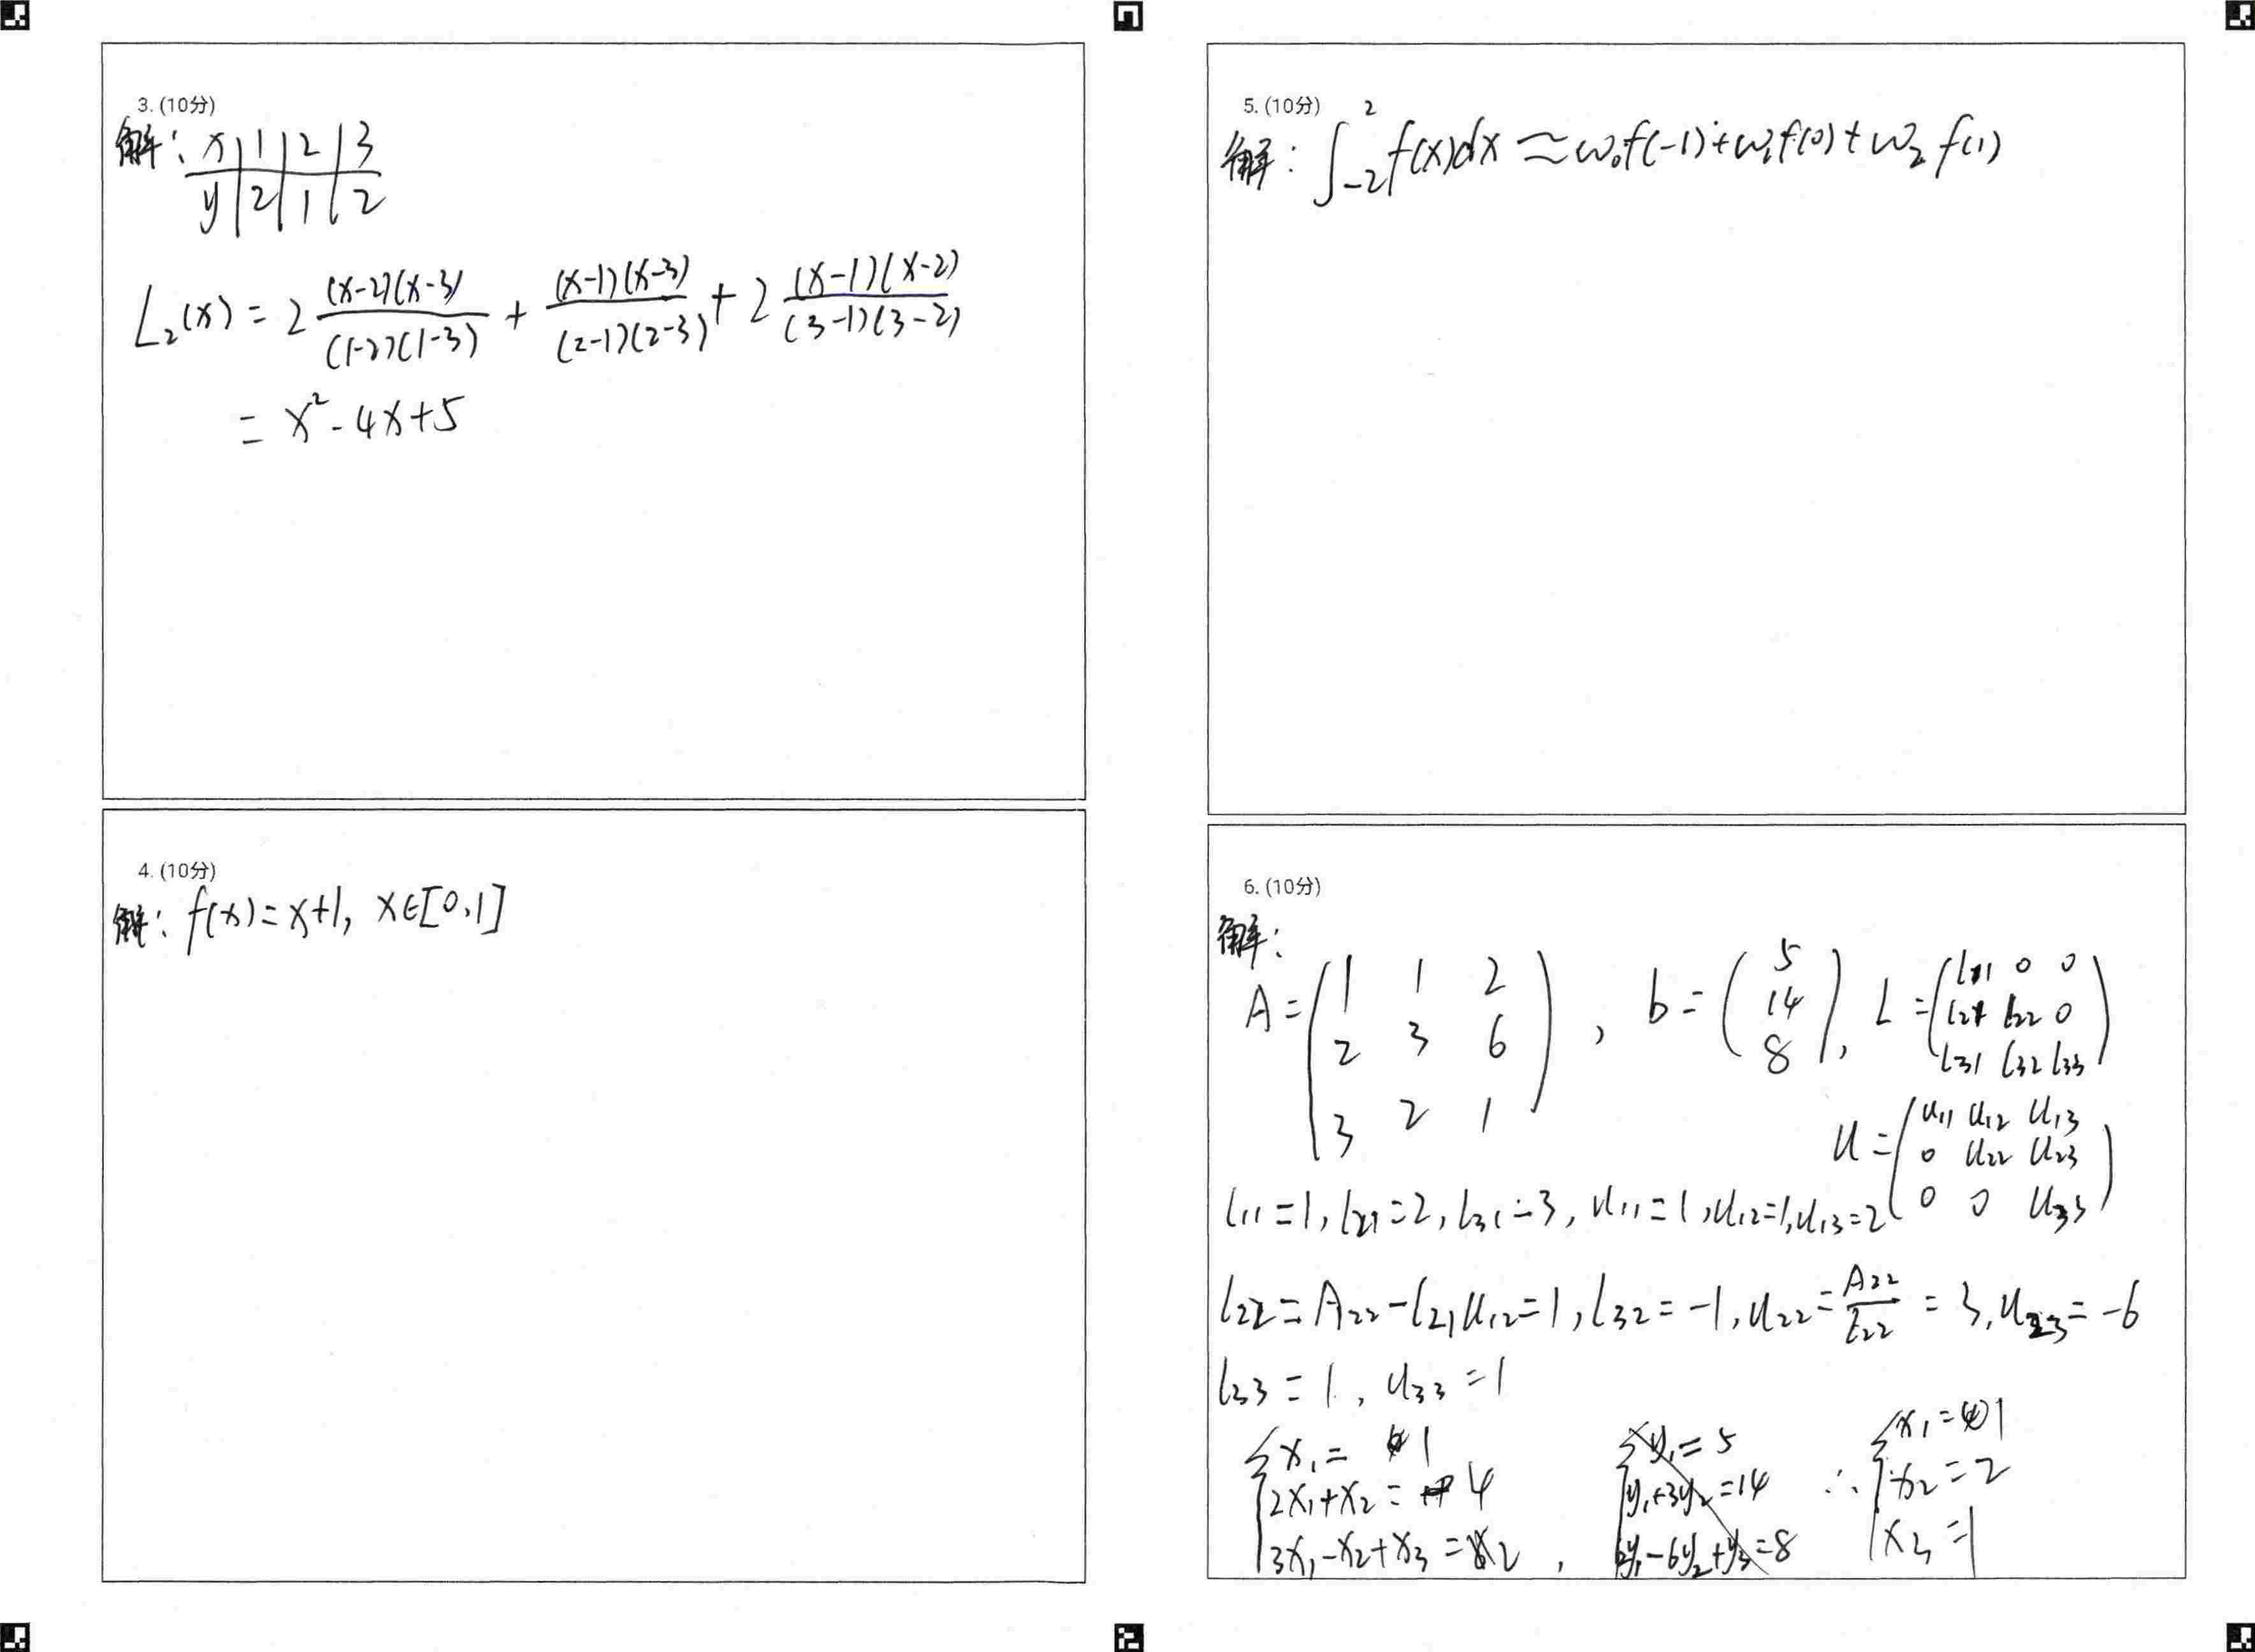 3. (10分)
解: x | 1 | 2 | 3
y | 2 | 1 | 2
L₂(x) = 2 (x-2)(x-3)/(1-2)(1-3) + (x-1)(x-3)/(2-1)(2-3) + 2 (x-1)(x-2)/(3-1)(3-2)
= x² - 4x + 5
4. (10分)
解: f(x) = x+1, x∈[0,1]
5. (10分)
解: ∫₋₂² f(x)dx ≈ ω₀f(-1) + ω₁f(0) + ω₂f(1)
6. (10分)
解:
A = ( 1 1 2 ; 2 3 6 ; 3 2 1 ), b = ( 5 ; 14 ; 8 ), L = ( l₁₁ 0 0 ; l₂₁ l₂₂ 0 ; l₃₁ l₃₂ l₃₃ )
U = ( u₁₁ u₁₂ u₁₃ ; 0 u₂₂ u₂₃ ; 0 0 u₃₃ )
l₁₁ = 1, l₂₁ = 2, l₃₁ = 3, u₁₁ = 1, u₁₂ = 1, u₁₃ = 2
l₂₂ = A₂₂ - l₂₁u₁₂ = 1, l₃₂ = -1, u₂₂ = A₂₂/l₂₂ = 3, u₂₃ = -6
l₃₃ = 1, u₃₃ = 1
{ x₁ = 1
2x₁ + x₂ = 4
3x₁ - x₂ + x₃ = 2 ,
{ y₁ = 5
y₁ + 3y₂ = 14
y₁ - 6y₂ + y₃ = 8
∴ { x₁ = 1
x₂ = 2
x₃ = 1